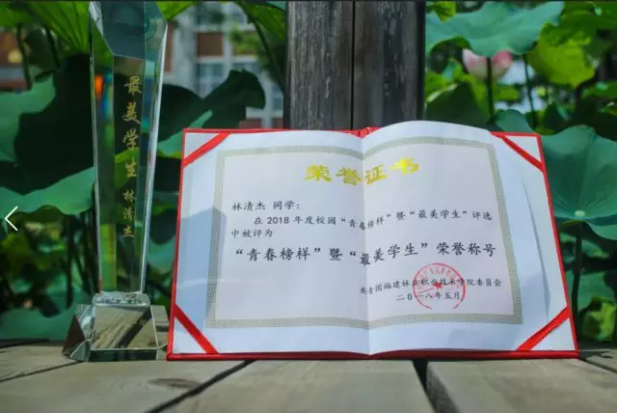 最美学生 林清杰
荣誉证书
林清杰 同学：
在 2018 年度校园“青春榜样”暨“最美学生”评选
中被评为
“青春榜样”暨“最美学生”荣誉称号
共青团福建林业职业技术学院委员会
二〇一八年五月